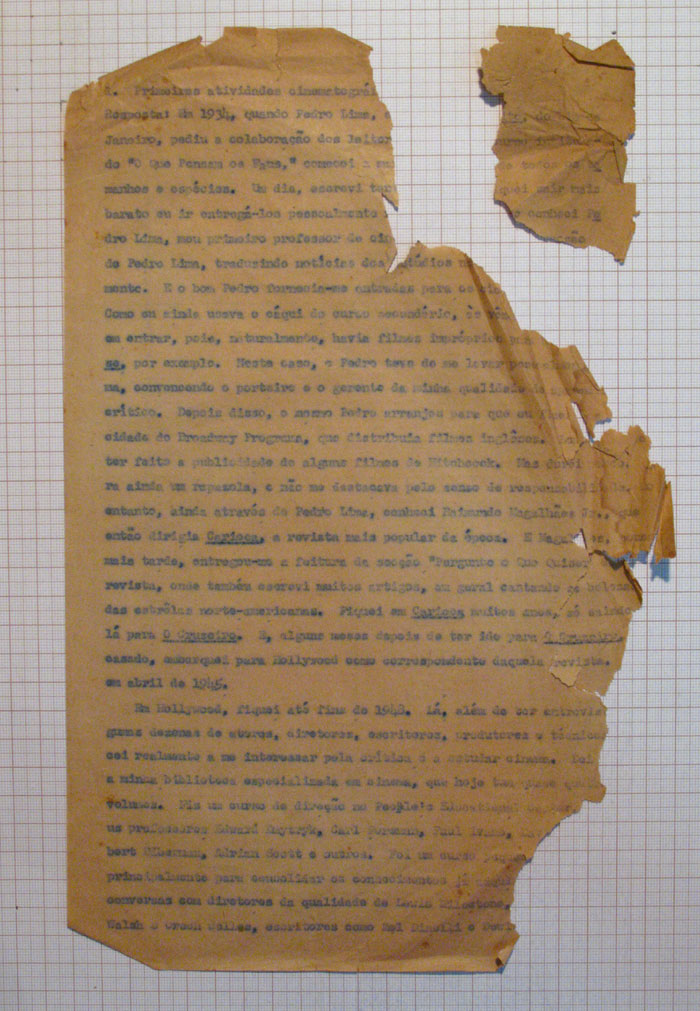 2. Primeiras atividades cinematográ
Resposta: Em 1934, quando Pedro Lima, do
Janeiro, pediu a colaboração dos leitor
do "O Que Pensam os Fans," comecei a de todos os
manhos e espécies. Um dia, escrevi quei mais
barato eu ir entregá-los pessoalmente conheci Pe
dro Lima, meu primeiro professor de
de Pedro Lima, traduzindo notícias dos estúdios
mente. E o bom Pedro fornecia-me entradas para os
Como eu ainda usava o cáqui do curso secundário, às
em entrar, pois, naturalmente, havia filmes impróprios
, por exemplo. Nesta caso, o Pedro teve de me levar
ma, convencendo o porteiro e o gerente da minha qualidade de
crítico. Depois disso, o mesmo Pedro arranjou para que eu
cidade do Broadway Programa, que distribuia filmes inglêses.
ter feito a publicidade de alguns filmes de Hitchcock. Mas
ra ainda um rapazola, e não me destacava pelo senso de responsabilidade.
entanto, ainda através de Pedro Lima, conheci Raimundo Magalhães Jr., que
então dirigia Carioca, a revista mais popular da época. E
mais tarde, entregou-me a feitura da secção "Pergunte o Que Quiser
revista, onde também escrevi muitos artigos, em geral cantando as belezas
das estrêlas norte-americanas. Fiquei em Carioca muitos anos, só saindo
lá para O Cruzeiro. E, alguns meses depois de ter ido para O Cruzeiro,
casado, embarquei para Hollywood como correspondente daquela revista.
em abril de 1945.
Em Hollywood, fiquei até fins de 1948. Lá, além de ter entrevis
gumas dezenas de atores, diretores, escritores, produtores e técnicos
cei realmente a me interessar pela crítica e a estudar cinema.
a minha biblioteca especializada em cinema, que hoje tem
volumes. Fiz um curso de direção no People's Educational
us professores Edward Dmytryk, Carl Foreman, Paul
bert Biberman, Adrian Scott e outros. Foi um curso
principalmente para consolidar os conhecimentos
conversas com diretores da qualidade de Lewis Milestone,
Walsh e Orson Welles, escritores como